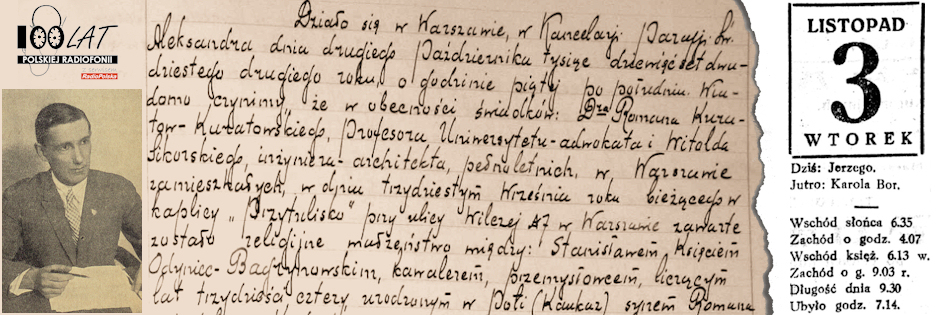 100 LAT
POLSKIEJ RADIOFONII
RadioPolska
Działo się w Warszawie, w Kancelaryi Parafji Św.
Aleksandra dnia drugiego Października tysiąc dziewięćset dwu-
dziestego drugiego roku, o godzinie piątej po południu. Wia-
domo czynimy, że w obecności świadków: Dra Romana Kura-
tow-Kuratowskiego, Profesora Uniwersytetu-adwokata i Witolda
Sikorskiego, inżyniera-architekta, pełnoletnich, w Warszawie
zamieszkałych, w dniu trzydziestym Września roku bieżącego w
kaplicy „Przytulisko" przy ulicy Wilczej 47 w Warszawie zawarte
zostało religijne małżeństwo między: Stanisławem Księciem
Odyniec-Baczynowskim, kawalerem, przemysłowcem, liczącym
lat trzydzieści cztery urodzonym w Poti (Kaukaz) synem Romana
LISTOPAD
3
WTOREK
Dziś: Jerzego.
Jutro: Karola Bor.
Wschód słońca 6.35
Zachód o godz. 4.07
Wschód księż. 6.13 w.
Zachód o g. 9.03 r.
Długość dnia 9.30
Ubyło godz. 7.14.